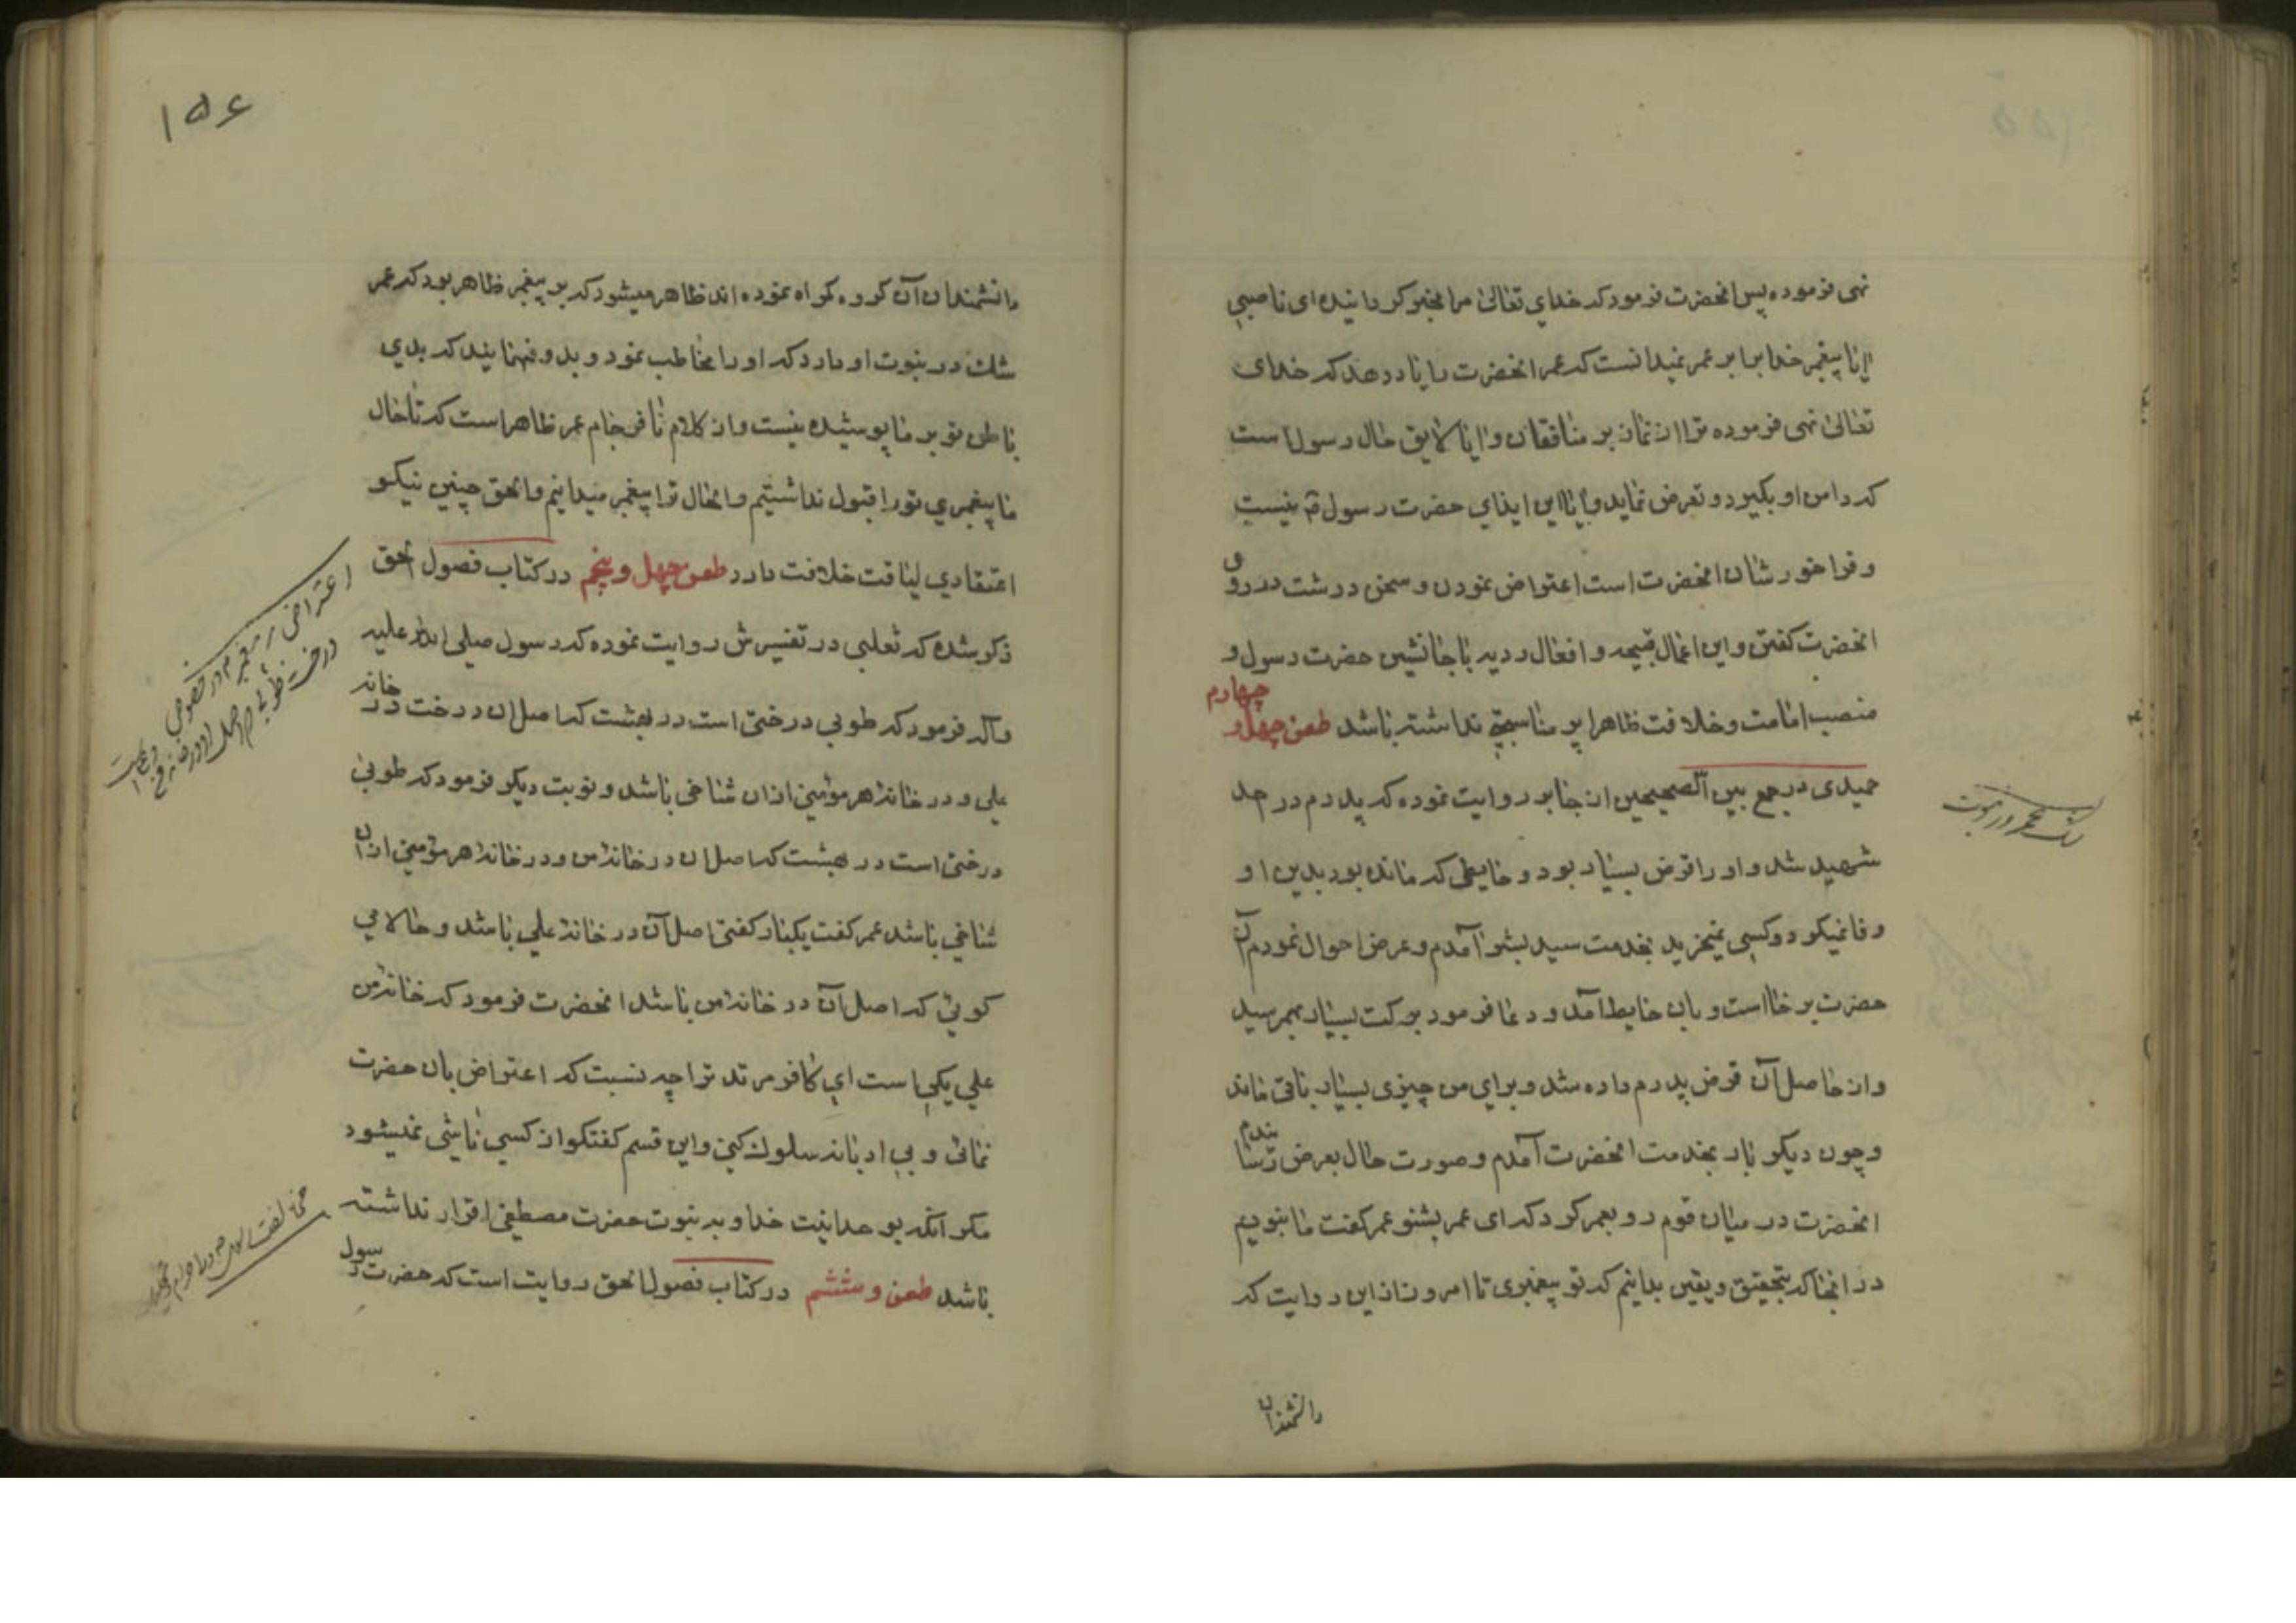 نهی فرموده پس انحضرت فرمود که خدای تعالی مرا مخیر کردانیده ای ناصبی
ایا پیغمبر خدا برابر عمر نمیدانست که عمر انحضرت را یاد دهد که خدای
تعالی نهی فرموده ترا از نماز بر منافقان و ایا لایق حال رسول است
که دامن او بکیرد و تعرض نماید و ایا این ایذای حضرت رسول نیست
و فراخور شان انحضرت است اعتراض نمودن و سخن درشت در روی
انحضرت کفتن و این اعمال قبیحه و افعال ردیه با جانشین حضرت رسول و
منصب امامت و خلافت ظاهرا پر مناسبتی نداشته باشد طعن چهل و چهارم
حمیدی در جمع بین الصحیحین از جابر روایت نموده که پدرم در احد
شهید شد و او را قرض بسیار بود و حایطی که مانده بود بدین او
وفا نمیکرد و کسی نمیخرید بخدمت سید بشر آمدم و عرض احوال نمودم آن
حضرت برخاست و بان حایط آمد و دعا فرمود برکت بسیار بهمرسید
و از حاصل آن قرض پدرم داده شد و برای من چیزی بسیار باقی ماند
و چون دیکر بار بخدمت انحضرت آمدم و صورت حال بعرض رسانیدم
انحضرت در میان قوم رو بعمر کرد که ای عمر بشنو عمر کفت ما نبودیم
در انجا که بتحقیق و یقین بدانیم که تو پیغمبری تا امروز از این روایت که
دانشمندان
شک عمر در نبوت
۱۵۶
دانشمندان آن کروه کواه نموده اند ظاهر میشود که بر پیغمبر ظاهر بود که عمر
شک در نبوت او دارد که او را مخاطب نمود و بدو فهمانید که بدی
باطن تو بر ما پوشیده نیست و از کلام نافرجام عمر ظاهر است که تا حال
ما پیغمبری تو را قبول نداشتیم و الحال ترا پیغمبر میدانیم و الحق چنین نیکو
اعتقادی لیاقت خلافت دارد طعن چهل و پنجم در کتاب فصول الحق
ذکر شده که ثعلبی در تفسیرش روایت نموده که رسول صلی الله علیه
و آله فرمود که طوبی درختی است در بهشت که اصل ان درخت در خانه
علی و در خانه هر مؤمنی از ان شاخی باشد و نوبت دیکر فرمود که طوبی
درختی است در بهشت که اصل ان در خانه من و در خانه هر مؤمنی از ان
شاخی باشد عمر کفت یکبار کفتی اصل آن در خانه علی باشد و حالا می
کوئی که اصل آن در خانه من باشد انحضرت فرمود که خانه من
علی یکی است ای کافر مرتد ترا چه نسبت که اعتراض بان حضرت
نمائی و بی ادبانه سلوک کنی و این قسم کفتکو از کسی ناشی نمیشود
مکر آنکه بوحدانیت خدا و به نبوت حضرت مصطفی اقرار نداشته
باشد طعن و ششم در کتاب فصول الحق روایت است که حضرت رسول
اعتراض بر پیغمبر در خصوص
درخت طوبی